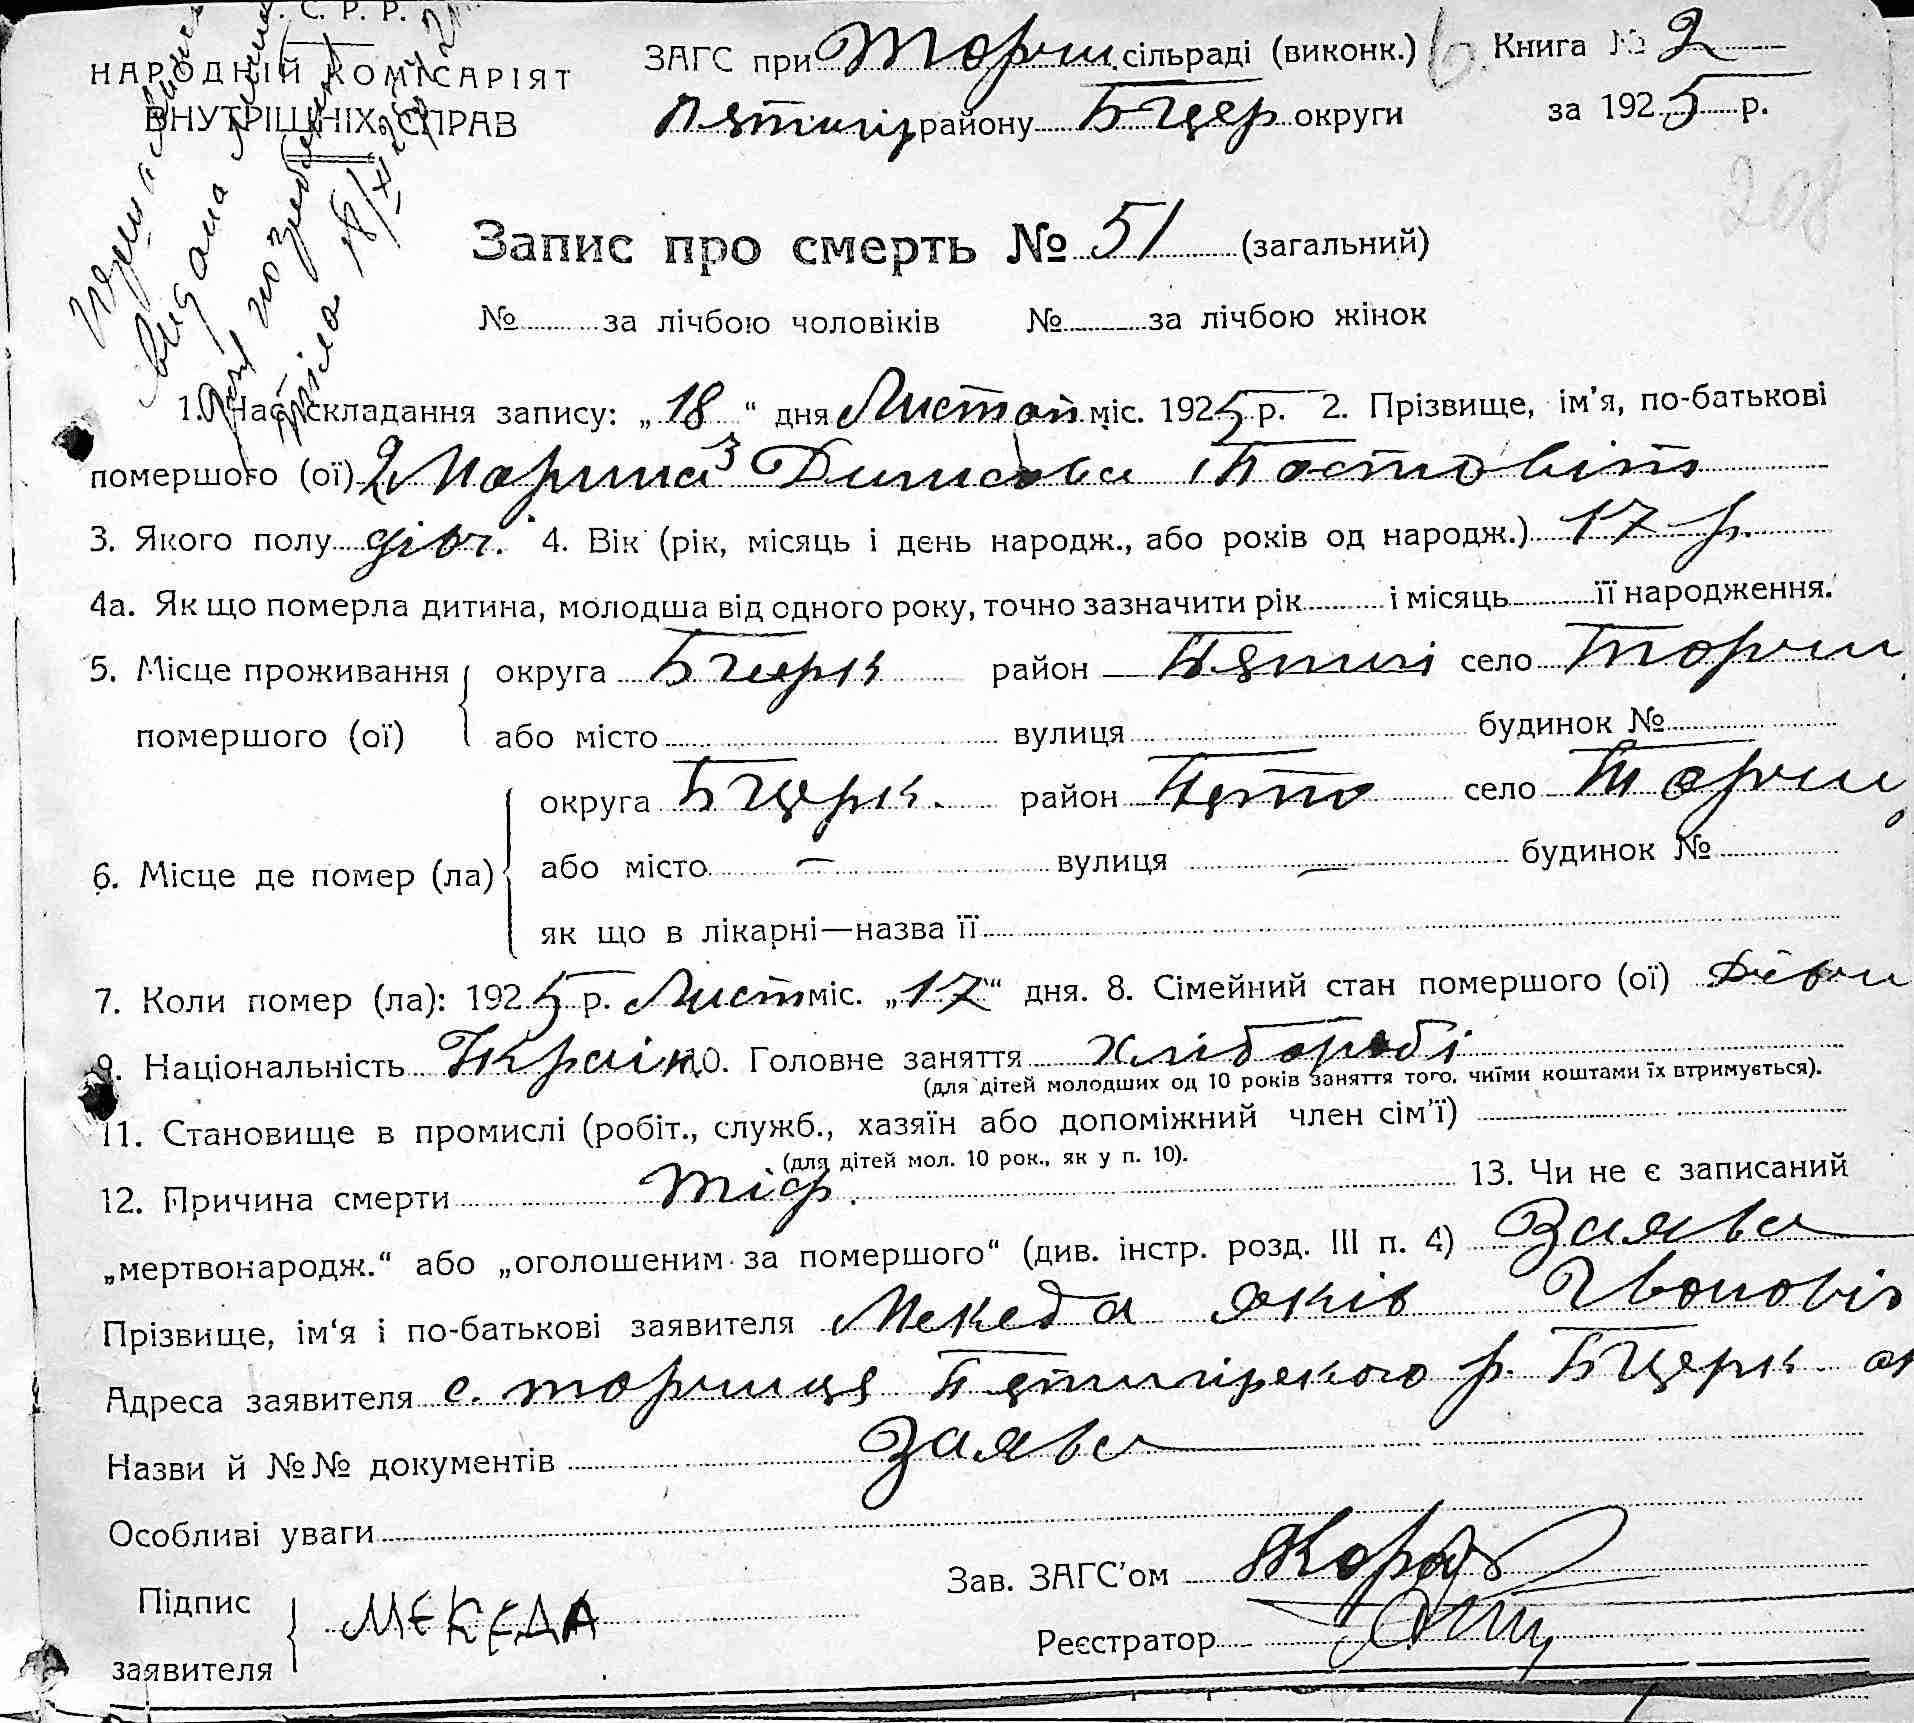 С. Р. Р.
НАРОДНІЙ КОМІСАРІЯТ
ВНУТРІШНІХ СПРАВ
ЗАГС при Торчи. сільраді (виконк.) 6. Книга № 2
Пятигір району БЦер округи за 1925 р.
208
видана
для погребения
тіла 18/XI
Запис про смерть № 51 (загальний)
№ за лічбою чоловіків № за лічбою жінок
1. Час складання запису: „18“ дня Листоп міс. 1925 р. 2. Прізвище, ім'я, по-батькові
помершого (ої) 2 Марина 3 Динисова 1 Постовіт
3. Якого полу дівч. 4. Вік (рік, місяць і день народж., або років од народж.) 17 р.
4а. Як що померла дитина, молодша від одного року, точно зазначити рік і місяць її народження.
5. Місце проживання помершого (ої) округа БЦерк район Пятигі село Торчи
або місто вулиця будинок №
6. Місце де помер (ла) округа БЦерк. район Пято село Торчи
або місто — вулиця — будинок №
як що в лікарні—назва її
7. Коли помер (ла): 1925 р. Лист міс. „17“ дня. 8. Сімейний стан помершого (ої) Дівчи
9. Національність Украін 10. Головне заняття хліборобі
(для дітей молодших од 10 років заняття того, чиїми коштами їх втримується).
11. Становище в промислі (робіт., служб., хазяїн або допоміжний член сім'ї)
(для дітей мол. 10 рок., як у п. 10).
12. Причина смерти тіф. 13. Чи не є записаний
„мертвонародж.“ або „оголошеним за помершого“ (див. інстр. розд. III п. 4) Заява
Прізвище, ім'я і по-батькові заявителя Мекеда Яків
Адреса заявителя с. торчиця Пятигірского р. БЦерк ок
Назви й №№ документів Заява
Особливі уваги
Підпис заявителя МЕКЕДА
Зав. ЗАГС'ом
Реєстратор